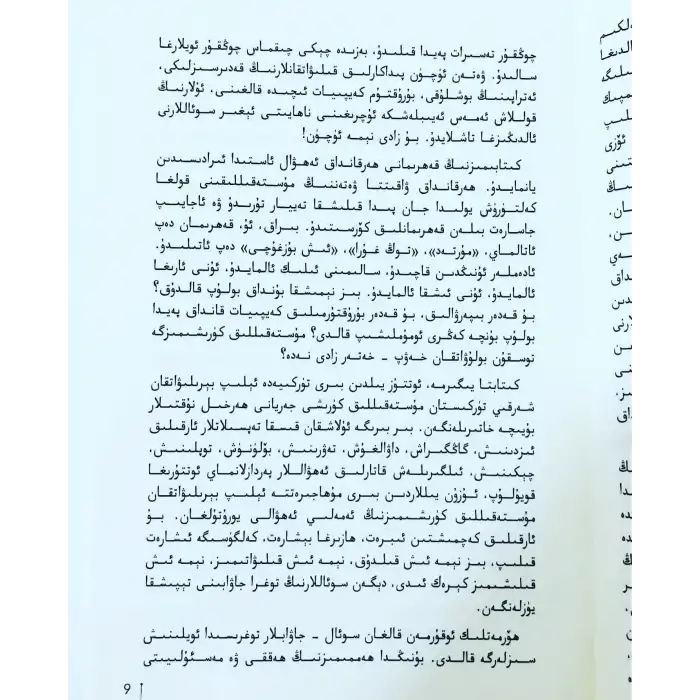 چوڭقۇر تەسىرات پەيدا قىلىدۇ، بەزىدە چېكى چىقماس چوڭقۇر ئويلارغا
سالىدۇ. ۋەتەن ئۈچۈن پىداكارلىق قىلىۋاتقانلارنىڭ قەدىرسىزلىكى،
ئەتراپىنىڭ بوشلۇقى، بۇرۇقتۇم كەيپىيات ئىچىدە قالغىنى، ئۇلارنىڭ
قوللاش ئەمەس ئەيىبلەشكە ئۇچرىغىنى ناھايىتى ئېغىر سوئاللارنى
ئالدىڭىزغا تاشلايدۇ. بۇ زادى نېمە ئۈچۈن!
كىتابىمىزنىڭ قەھرىمانى ھەرقانداق ئەھۋال ئاستىدا ئىرادىسىدىن
يانمايدۇ. ھەرقانداق ۋاقىتتا ۋەتەننىڭ مۇستەقىللىقىنى قولغا
كەلتۈرۈش يولىدا جان پىدا قىلىشقا تەييار تۇرىدۇ ۋە ئاجايىپ
جاسارەت بىلەن قەھرىمانلىق كۆرسىتىدۇ. بىراق، ئۇ، قەھرىمان دەپ
ئاتالماي، «مۇرتەد»، «توڭ غۇرا»، «ئىش بۇزغۇچى» دەپ ئاتىلىدۇ.
ئادەملەر ئۇنىڭدىن قاچىدۇ، سالىمىنى ئىلىك ئالمايدۇ، ئۇنى ئارىغا
ئالمايدۇ، ئۇنى ئىشقا ئالمايدۇ. بىز نېمىشقا بۇنداق بولۇپ قالدۇق؟
بۇ قەدەر بىپەرۋالىق، بۇ قەدەر بۇرۇقتۇرمىلىق كەيپىيات قانداق پەيدا
بولۇپ بۇنچە كەڭرى ئومۇملىشىپ قالدى؟ مۇستەقىللىق كۈرىشىمىزگە
توسقۇن بولۇۋاتقان خەۋپ - خەتەر زادى نەدە؟
كىتابتا يىگىرمە، ئوتتۇز يىلدىن بىرى تۈركىيەدە ئېلىپ بېرىلىۋاتقان
شەرقىي تۈركىستان مۇستەقىللىق كۈرىشى جەريانى ھەرخىل نۇقتىلار
بۇيىچە خاتىرىلەنگەن. بىر بىرىگە ئۇلاشقان قىسقا تەپسىلاتلار ئارقىلىق
ئىزدىنىش، گاڭگىراش، داۋالغۇش، تەۋرىنىش، بۆلۈنۈش، توپلىنىش،
چېكىنىش، ئىلگىرىلەش قاتارلىق ئەھۋاللار پەردازلانماي ئوتتۇرىغا
قويۇلۇپ، ئۇزۇن يىللاردىن بىرى مۇھاجىرەتتە ئېلىپ بېرىلىۋاتقان
مۇستەقىللىق كۈرىشىمىزنىڭ ئەمەلىي ئەھۋالى يورۇتۇلغان. بۇ
ئارقىلىق كەچمىشتىن ئىبرەت، ھازىرغا بېشارەت، كەلگۈسىگە ئىشارەت
قىلىپ، بىز نېمە ئىش قىلدۇق، نېمە ئىش قىلىۋاتىمىز، نېمە ئىش
قىلىشىمىز كېرەك ئىدى، دېگەن سوئاللارنىڭ توغرا جاۋابىنى تېپىشقا
يۈزلەنگەن.
ھۆرمەتلىك ئوقۇرمەن قالغان سوئال - جاۋابلار توغرىسىدا ئويلىنىش
سىزلەرگە قالدى. بۇنىڭدا ھەممىمىزنىڭ ھەققى ۋە مەسئۇلىيىتى
9